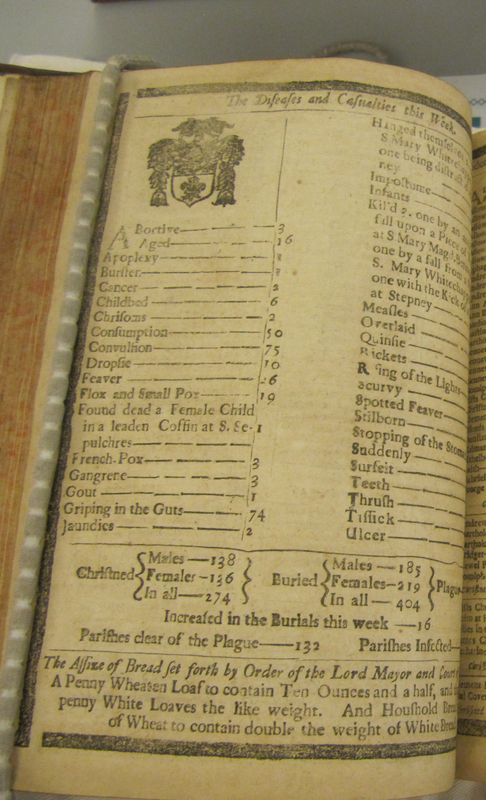 The Diseases and Casualties this Week.
ABortive 3
Aged 16
Apoplexy 1
Bursten 1
Cancer 2
Childbed 6
Chrisoms 2
Consumption 50
Convulsion 75
Dropsie 10
Feaver 26
Flox and Small Pox 19
Found dead a Female Child
in a leaden Coffin at S. Se- 1
pulchres
French-Pox 3
Gangrene 3
Gout 1
Griping in the Guts 74
Jaundies 2
Hanged themselves
S Mary White
one being distra
ney
Impostume
Infants
Kil'd 3. one by an
fall upon a Piece of
at S Mary Mag.
one by a fall from
S. Mary Whitech
one with the Kick of
at Stepney
Measles
Overlaid
Quinsie
Rickets
Rising of the Lights
Scurvy
Spotted Feaver
Stilborn
Stopping of the Stom
Suddenly
Surfeit
Teeth
Thrush
Tissick
Ulcer
Christned { Males—138 Females—136 In all—274 }
Buried { Males—185 Females—219 In all—404 } Plague
Increased in the Burials this week—16
Parishes clear of the Plague—132 Parishes Infected—
The Assize of Bread set forth by Order of the Lord Mayor and Court of
A Penny Wheaten Loaf to contain Ten Ounces and a half, and
penny White Loaves the like weight. And Houshold Brea
of Wheat to contain double the weight of White Bread